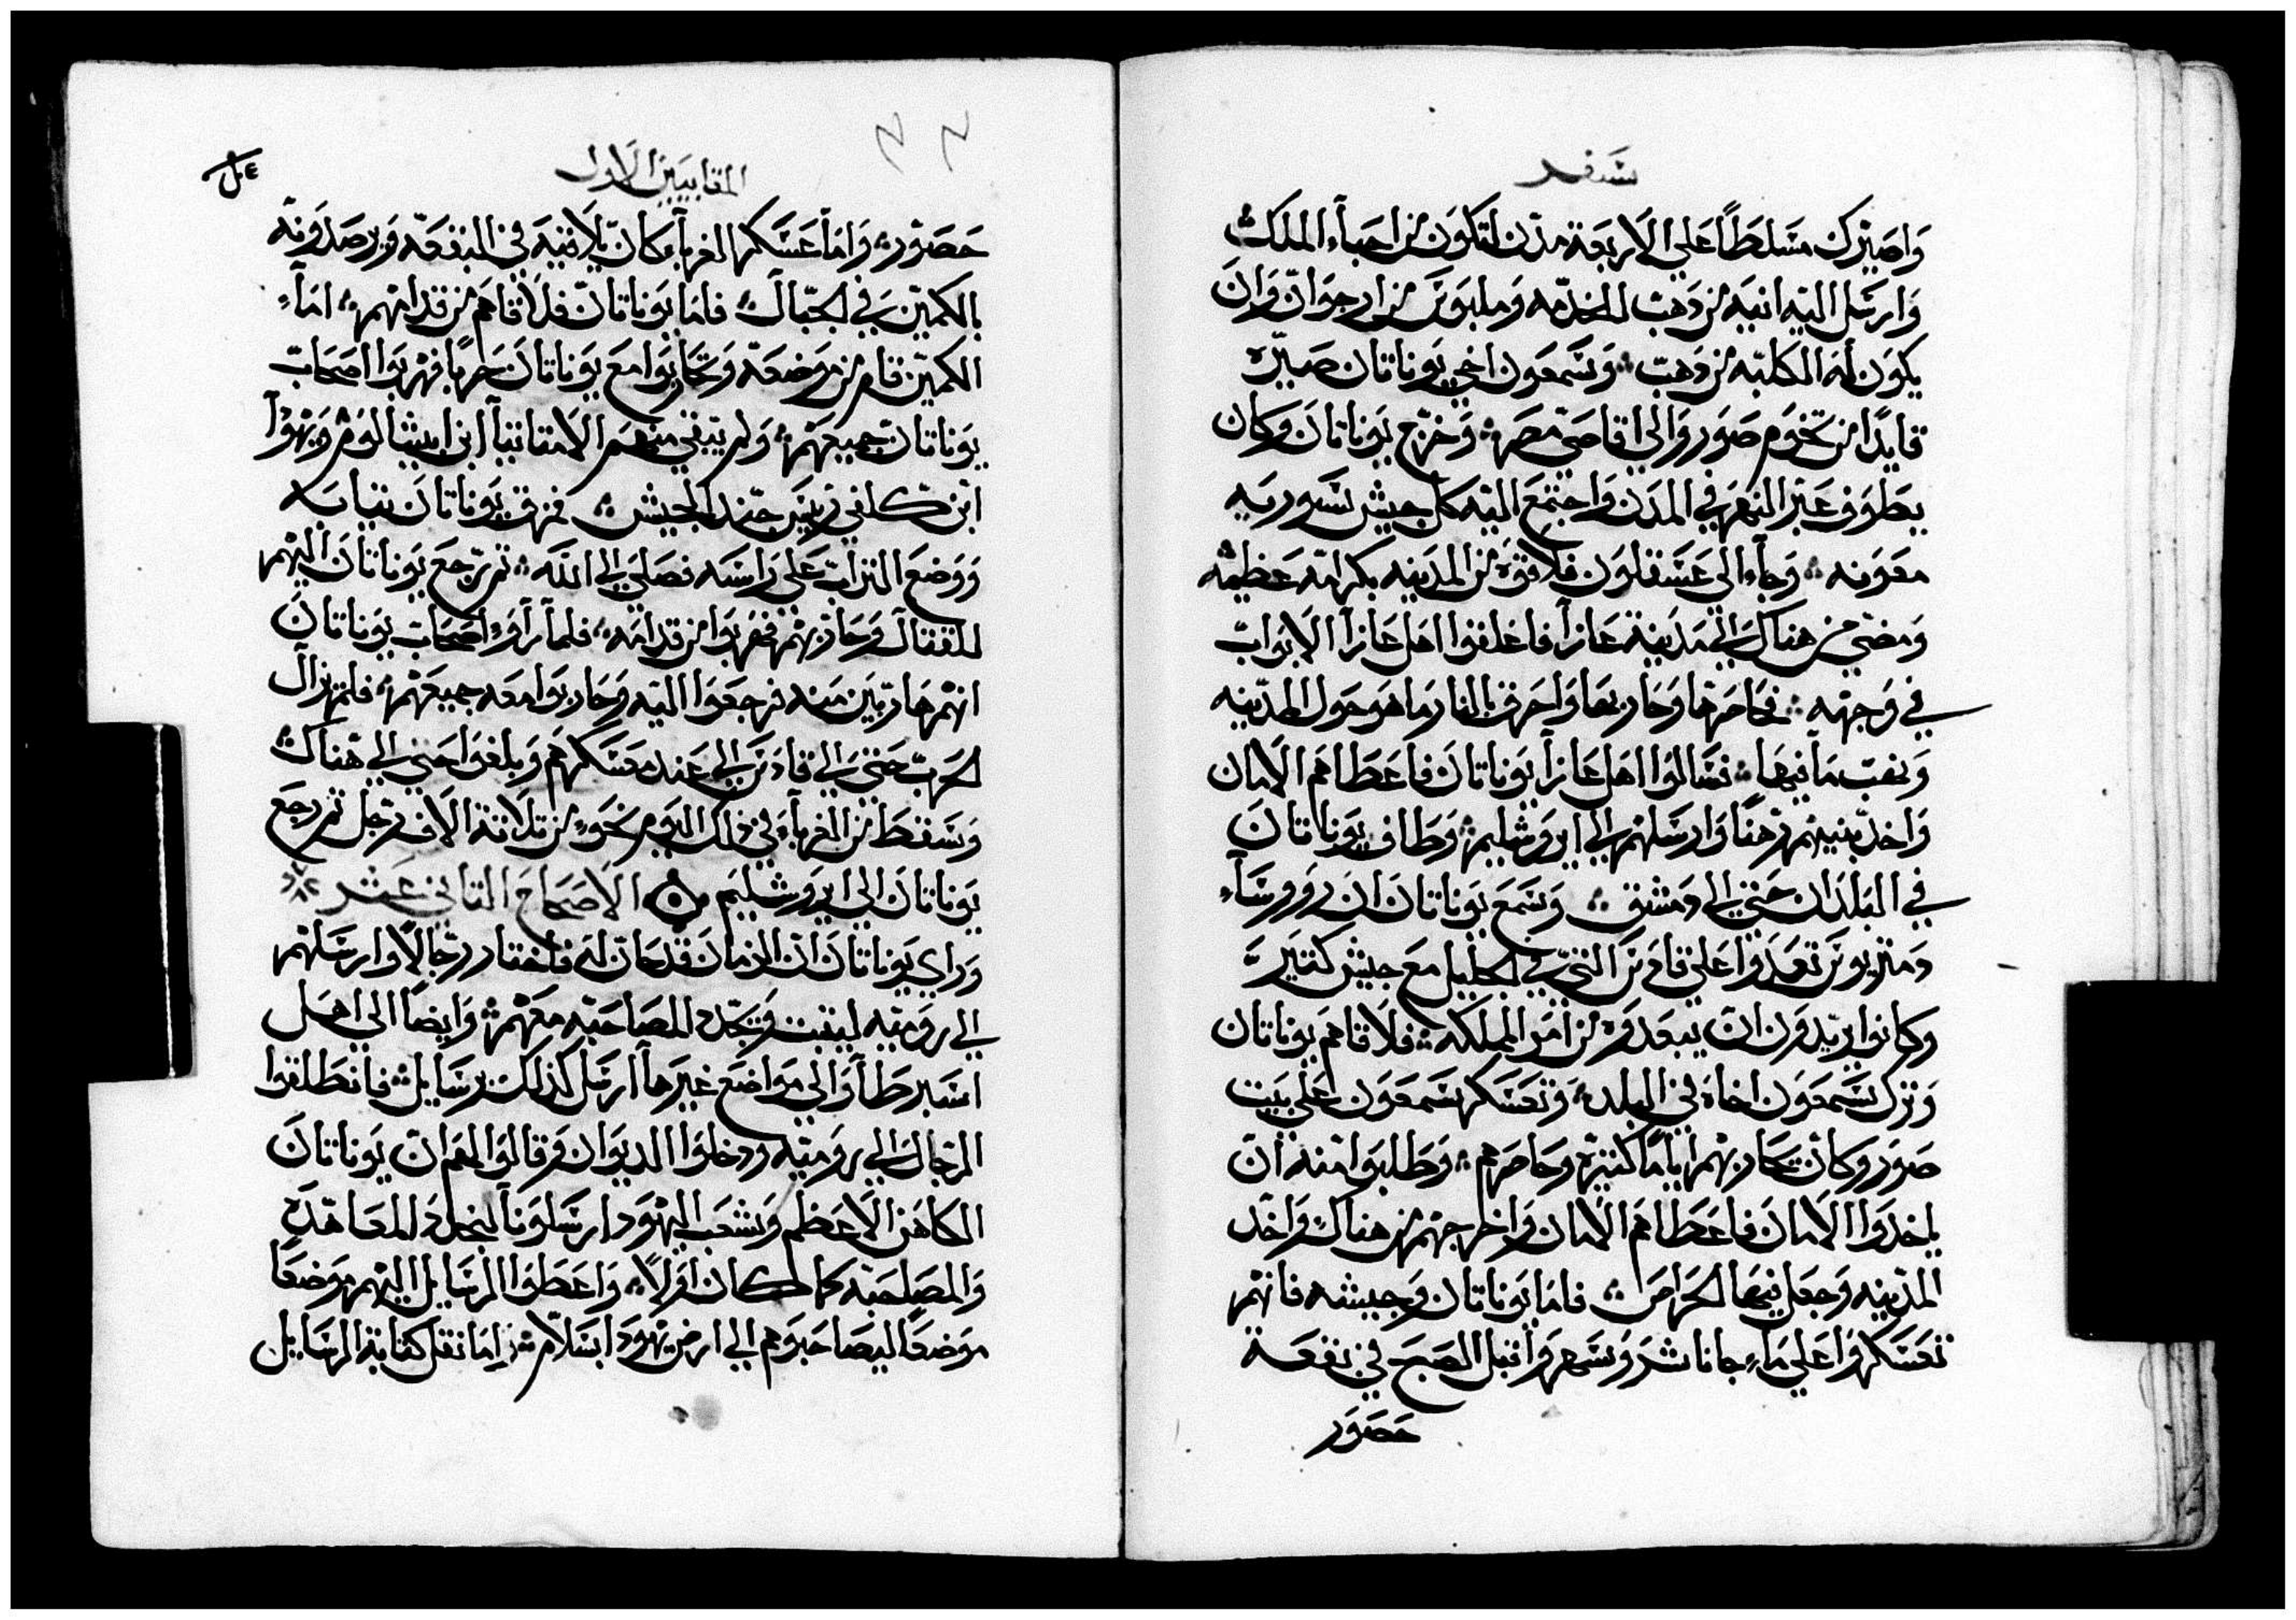 سفر
وَاصيرك مسَلطاً عَلي الاربَعة مدن لتكوَن من احبآء الملك
وَارسَل اليَه انيَه من دَهب للخدمه وَملبوسَ من ارجوَان وَان
يكوَن له الكلبَه من دهب ⁘ وَسَمعَون اخي يوَناتان صَيرَه
قايدًا من تخوَم صَور وَالي اقاصَي مصَر ⁘ وَخرج يوَناتان وَكان
يطَوف عَبر النهر في المدن وَاجتمَع اليَه كل جيش سَوريَه
معَوَنه ⁘ وَجآء الى عَسَقلون فلاقوَه من المدينه بكرامه عظيمَه
وَمضي من هناك الي مدَينة غازا فاغلقوا اهل غازا الابوَاب
في وَجهه ⁘ فحاصَرها وَحاربها وَاحرق بالنار ما هو حوَل المدينه
وَنهب مَا فيها ⁘ فسَالوا اهل غازا يوَناتان فاعطَاهم الامان
وَاخد بنيهم رهنًا وَارسَلهم الي ايروَشليم ⁘ وَطاف يوَناتان
في البلدَان حَتي الي دمشق ⁘ وَسَمع يوَناتان ان روَوسَآء
دمتريوسَ تعَدوا عَلي قادسَ التي في الجليل مع جيش كتير
وَكانوا يريدوَن ان يبعَدوَه من امر المملكه ⁘ فلاقاهم يوناتان
وَترك سَمعَون اخاه في البلد ⁘ وَتعَسَكر سَمعَون عَلي بيَت
صَور وَكان تحاربهم اياماً كتيرة وَحاصرهم ⁘ وَطلبَوا منه ان
ياخدَوا الامان فاعَطاهم الامان وَاخرجهم من هناك وَاخد
المدينه وَجعل فيها الحراص ⁘ فاما يوَناتان وَجيشه فانهم
تعَسَكروا عَلي مآء جاناشر وَسَهروا قبل الصَبح في بقعَة
حصَوَر
المقابيين الاول
حَصَور ⁘ وَاما عَسَكر الغربآء كان يلاقيه في البقعَه وَيرصَدونه
بالكميَن في الجبال ⁘ فاما يوناتان فلاقاهم من قدامهم ⁘ امآء
الكمين قام من موَضعَه وَتحاربوا مع يوَناتان حربا فهربوا اصحاب
يوَناتان جميعَهم ⁘ وَلم يبقي منهم الا متاتيآ ابن ابيشالوم وَيهوَدآ
ابن كلفي رييسَ جند الجيش ⁘ فمزق يوَناتان تيابه
وَوضع التراب عَلي راسَه فصَلي الي الله ⁘ تم رجع يوَناتان اليهم
للقتال وَحاربهم فهربوا من قدامه ⁘ فلما راوَا اصحاب يوَناتان
انهم هاربين منه فرجعَوا اليه وَحاربوا معه جميعَهم ⁘ فلم يزال
الحرب حتي الي قادسَ الي عند معَسَكرهم وَبلغوا حتي الي هناك
وَسَقط من الغربآء في ذلك اليوم نحو من تلاتة الاف رجل تم رجع
يوناتان الي ايروشليم ⁘ الاصحاح التاني عَشر
وَراي يوَناتان ان الزمان قد حان له فاختار رجالاً وارسَلهم
الي روَميَه ليتبت وَتجدد المصَاحبه معَهم ⁘ وَايضًا الي اهل
اسَبرطآ وَالي موَاضع غيرها ارسَل كذلك برسَايل ⁘ فانطلقوا
الرجال الي روَميَه وَدخلوا الديوَان وَقالوا لهم ان يوَناتان
الكاهن الاعظم وَشعَب اليهوَد ارسَلونآ لنجدد المعَاهدَه
وَالمصَلحبَه كما كان اوَلاً ⁘ وَاعطوَا الرسَايل اليهم موَضعًا
موَضعًا ليصَاحبوهم الي ارض يهوَدا بسَلام ⁘ اما نقل كتابة الرسَايل